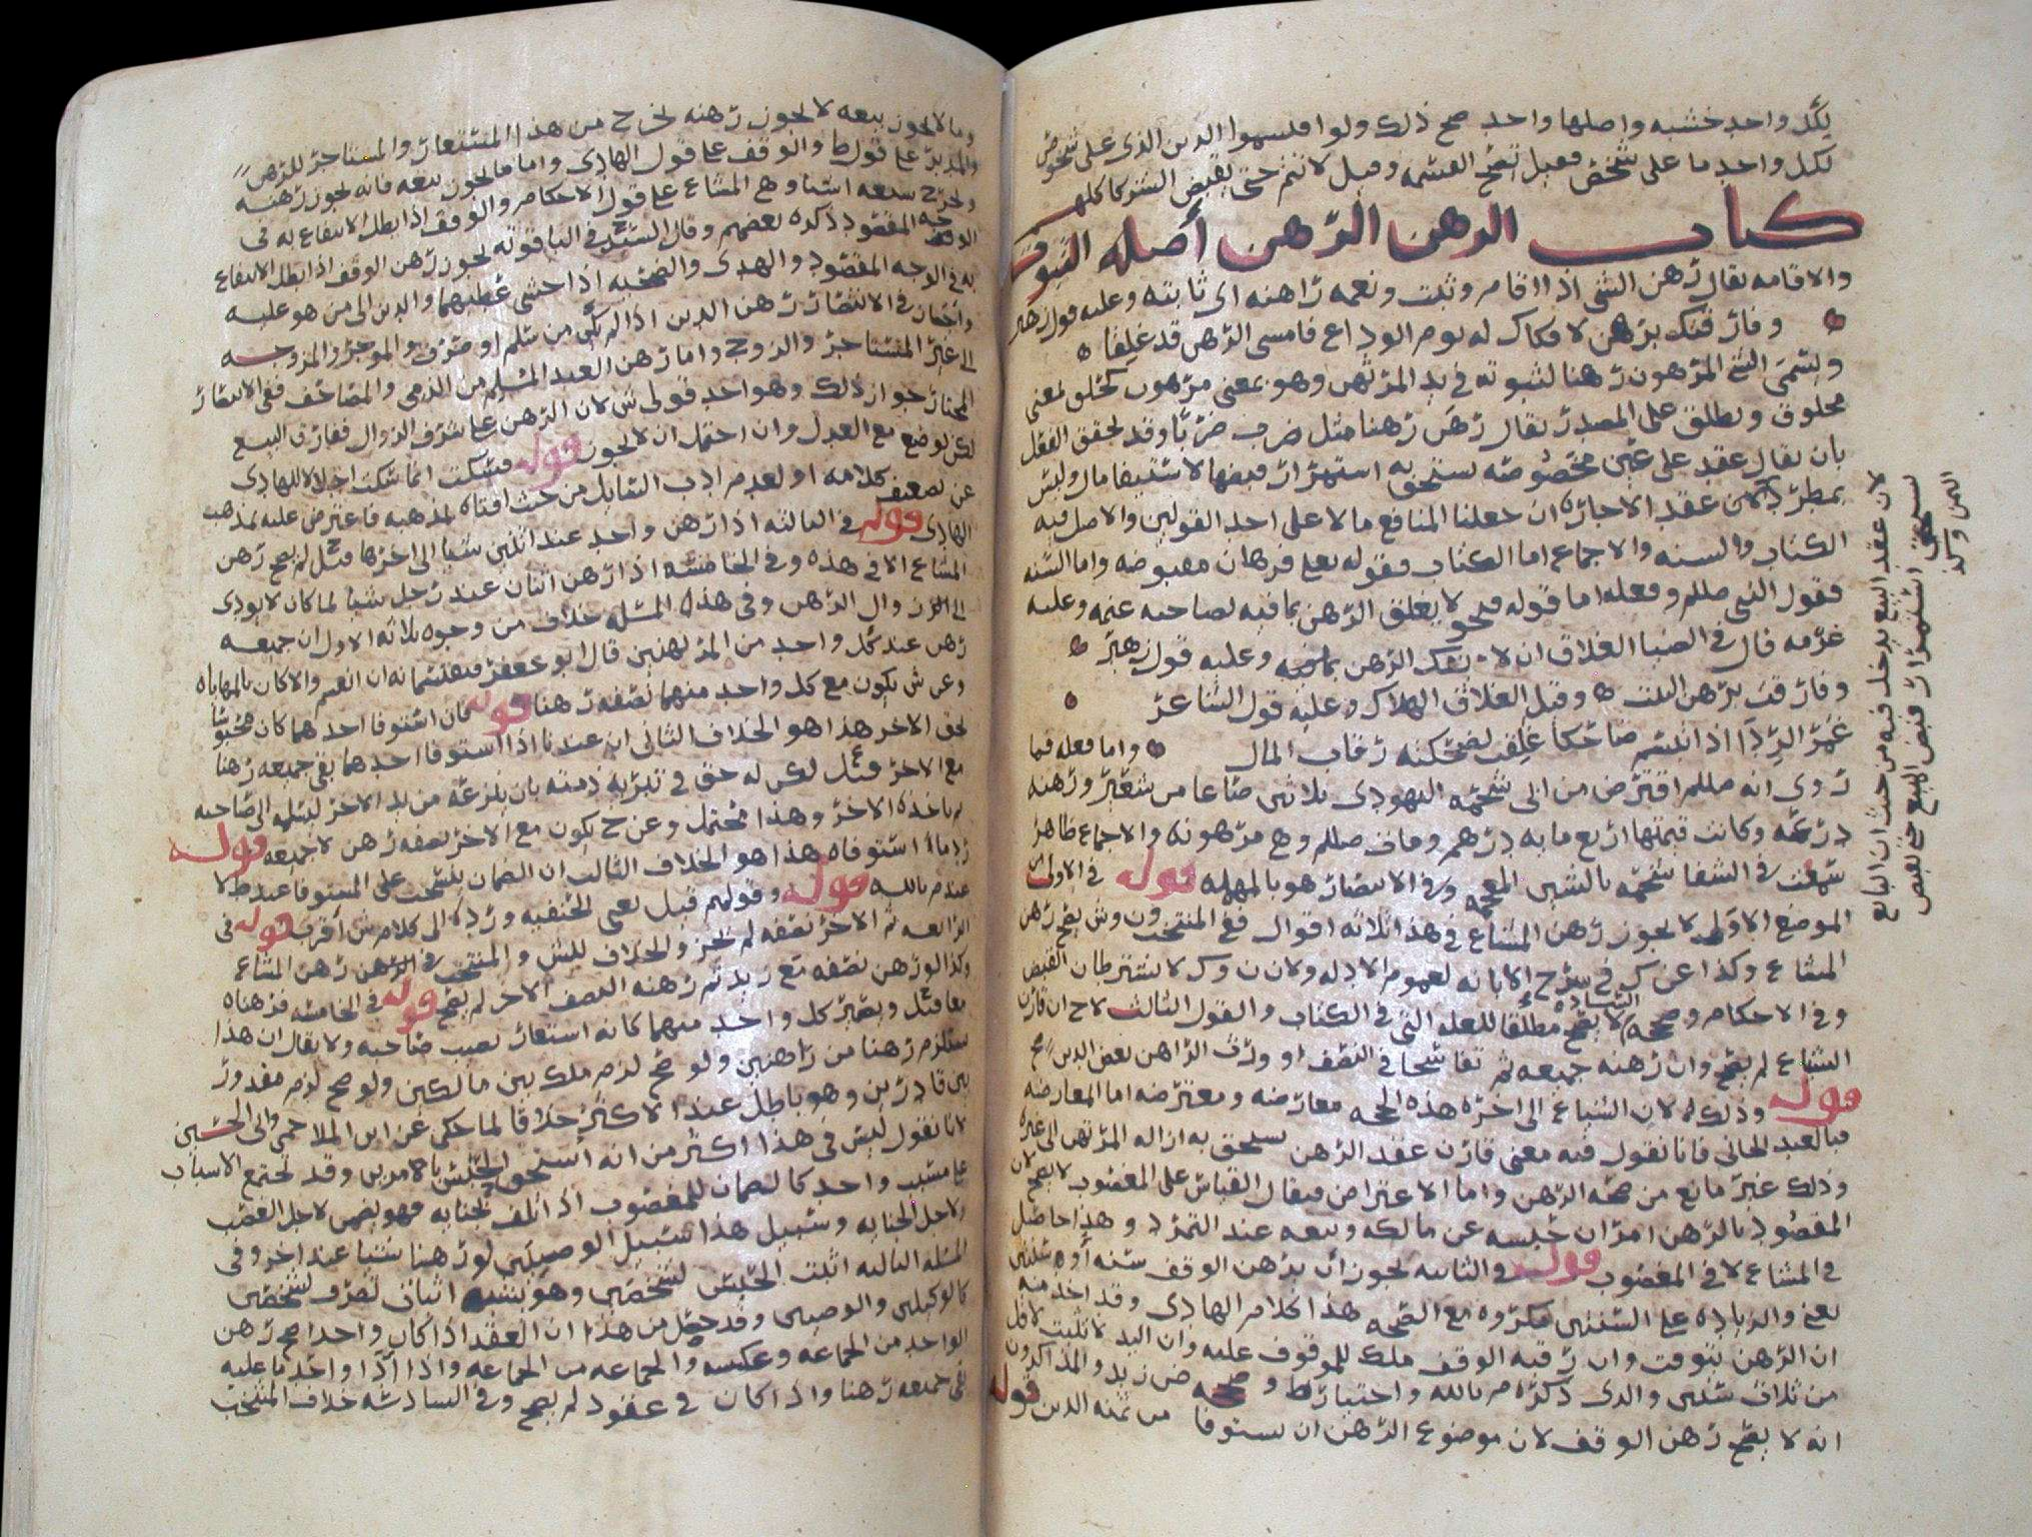 لكل واحد خشبه واصلها واحد صح ذلك ولو اقتسموا الدين الذي على شخوص
لكل واحد ما على شخص فقيل تصح القسمه وقيل لا تتم حتى يقبض الشركا كلهم
كتاب الرهن الرهن أصله الثبوت
والاقامه يقال رهن الشي اذا اقام وثبت ونعمه راهنه اي ثابته وعليه قول زهير
وفارقتك برهن لا فكاك له يوم الوداع فامسى الرهن قد غلقا
ويسمى الشي المرهون رهنا لثبوته في يد المرتهن وهو بمعنى مرهون كخلق بمعنى
مخلوق ويطلق على المصدر يقال رهن رهنا مثل ضرب ضربا وقد لحقق الفعل
بان يقال عقد على عين مخصوصه يستحق به استمرار قبضها لاستيفا مال وليس
بمطرد لان عقد الاجاره ان جعلنا المنافع مالا على احد القولين والاصل فيه
الكتاب والسنه والاجماع اما الكتاب فقوله تعلى فرهان مقبوضه واما السنه
فقول النبي صللم وفعله اما قوله فنحو لا يغلق الرهن بما فيه لصاحبه غنمه وعليه
غرمه قال في الضيا الغلاق ان لا يفك الرهن بما فيه وعليه قول زهير
وفارقت برهن البيت وقيل الغلاق الهلاك وعليه قول الشاعر
غمر الردا اذا ابتسم ضاحكا غلقت لضحكته رقاب المال واما فعله فما
روي انه صللم اقترض من ابي شحمه اليهودي ثلاثين صاعا من شعير ورهنه
درعه وكانت قيمتها اربع مايه درهم ومات صللم وهي مرهونه والاجماع ظاهر
سمعت في الشفا شحمه بالشين المعجمه وفي الانتصار هو بالمهمله قوله في الاولى
الموضع الاولى لا يجوز رهن المشاع في هذا ثلاثه اقوال ففي المنتخب ون وش يصح رهن
المشاع وكذا عن ك في شرح الابانه لعموم الادله ولان ن وك لا يشترطان القبض
وفي الاحكام و لا يصح مطلقا للعله التي في الكتاب والقول الثالث لاح ان قارن
الشياع لم يصح وان رهنه جميعه ثم تفاسخا في النصف او ورث الراهن بعض الدين صح
قوله وذلك لان الشياع الى اخره هذه الحجه معارضه ومعترضه اما المعارضه
فبالعبد الجاني فانا نقول فيه معنى قارن عقد الرهن يستحق به ازاله المرتهن الى غيره
وذلك غير مانع من صحه الرهن واما الاعتراض فيقال القياس على المغصوب لا يصح لان
المقصود بالرهن امران حبسه عن مالكه وبيعه عند التمرد وهذا حاصل
في المشاع لا في المغصوب قوله في الثانيه يجوز ان يرهن الوقف سنه او سنتين
يعني والزياده على السنتين مكروه مع الصحه هذا كلام الهادي وقد اخذ منه
ان الرهن يتوقت وان رقبه الوقف ملك للموقوف عليه وان اليد لا تثبت لاقل
من ثلاث سنين والذي ذكره م بالله واختاره ط و ض زيد والمذاكرون
انه لا يصح رهن الوقف لان موضوع الرهن ان يستوفا من ثمنه الدين قوله
لان عقد البيع يدخل فيه من حيث ان البايع
يستحق استمرار قبض المبيع حتى يقبض
الثمن وكذ
وما لا يجوز بيعه لا يجوز رهنه يخرج من هذا المستعار والمستاجر للرهن
والمدبر على قول ط والوقف على قول الهادي واما ما يجوز بيعه فانه يجوز رهنه
ويخرج سبعه اشيا وهي المشاع على قول الاحكام والوقف اذا بطل الانتفاع به في
الوجه المقصود ذكره بعضهم وقال السيد ح في الياقوته يجوز رهن الوقف اذا بطل الانتفاع
به في الوجه المقصود والهدي والضحيه اذا خشي عطبهما والدين الى من هو عليه
واختار في الانتصار رهن الدين اذا لم يكن من سلم او صرف والموجر والمزوجه
الى غير المستاجر والزوج واما رهن العبد المسلم من الذمي والمصاحف ففي الانتصار
المختار جواز ذلك وهو احد قولي ش لان الرهن على شرف الزوال ففارق البيع
لكن يوضع مع العدل وان احتمل ان لا يجوز قوله فسكت انما سكت اجلالا للهادي
عن تضعيف كلامه او لعدم ادب السايل من حيث افتاه لمذهبه فاعترض عليه بمذهب
الهادي قوله في الثالثه اذا رهن واحد عند اثنين شيا الى اخرها قيل لم يصح رهن
المشاع الا في هذه وفي الخامسه اذا رهن اثنان عند رجل شيا لما كان لا يودي
الى زوال الرهن وفي هذه المسله خلاف من وجوه ثلاثه الاول ان جميعه
رهن عند كل واحد من المرتهنين قال ابو جعفر فيقتسمانه ان انقسم والا كان بالمهاياه
وعن ش يكون مع كل واحد منهما نصفه رهنا قوله فان استوفا احدهما كان محبوسا
لحق الاخر هذا هو الخلاف الثاني انه عندنا اذا استوفا احدهما بقي جميعه رهنا
مع الاخر قيل لكن له حق في تبريه ذمته بان ينزعه من يد الاخر ليسلمه الى صاحبه
ثم ياخذه الاخر وهذا محتمل وعن ح يكون مع الاخر نصفه رهن لا جميعه قوله
رد ما استوفاه هذا هو الخلاف الثالث ان الضمان ينسحب على المستوفا عند ط لا
عند م بالله قوله وقولهم قيل يعني الحنفيه ورده الى كلام ش أقرب قوله في
الرابعه ثم الاخر نصفه لم يجز والخلاف للش والمنتخب في الرهن رهن المشاع
وكذا لو رهن نصفه مع زيد ثم رهنه النصف الاخر لم يصح قوله في الخامسه فرهناه
معا قيل ويصير كل واحد منهما كانه استعار نصيب صاحبه ولا يقال ان هذا
يستلزم رهنا من راهنين ولو صح لزم ملك بين مالكين ولو صح لزم مقدور
بين قادرين وهو باطل عند الاكثر خلافا لما حكي عن ابن الملاحمي وابي الحسين
لانا نقول ليس في هذا اكثر من انه استحق الحبس بامرين وقد تجتمع الاسباب
على مسبب واحد كالضمان للمغصوب اذا تلف بجنايه فهو يضمن لاجل الغصب
ولاجل الجنايه وسبيل هذا سبيل الوصيين لو رهنا شيا عند اخر وفي
المسله الثالثه اثبت الحبس لشخصين وهو يشبه اثبات تصرف لشخصين
كالوكيلين والوصيين وقد حصل من هذا ان العقد اذا كان واحدا صح رهن
الواحد من الجماعه وعكسه والجماعه من الجماعه واذا ادا واحد ما عليه
بقي جميعه رهنا واذا كان في عقود لم يصح وفي السادسه خلاف المنتخب